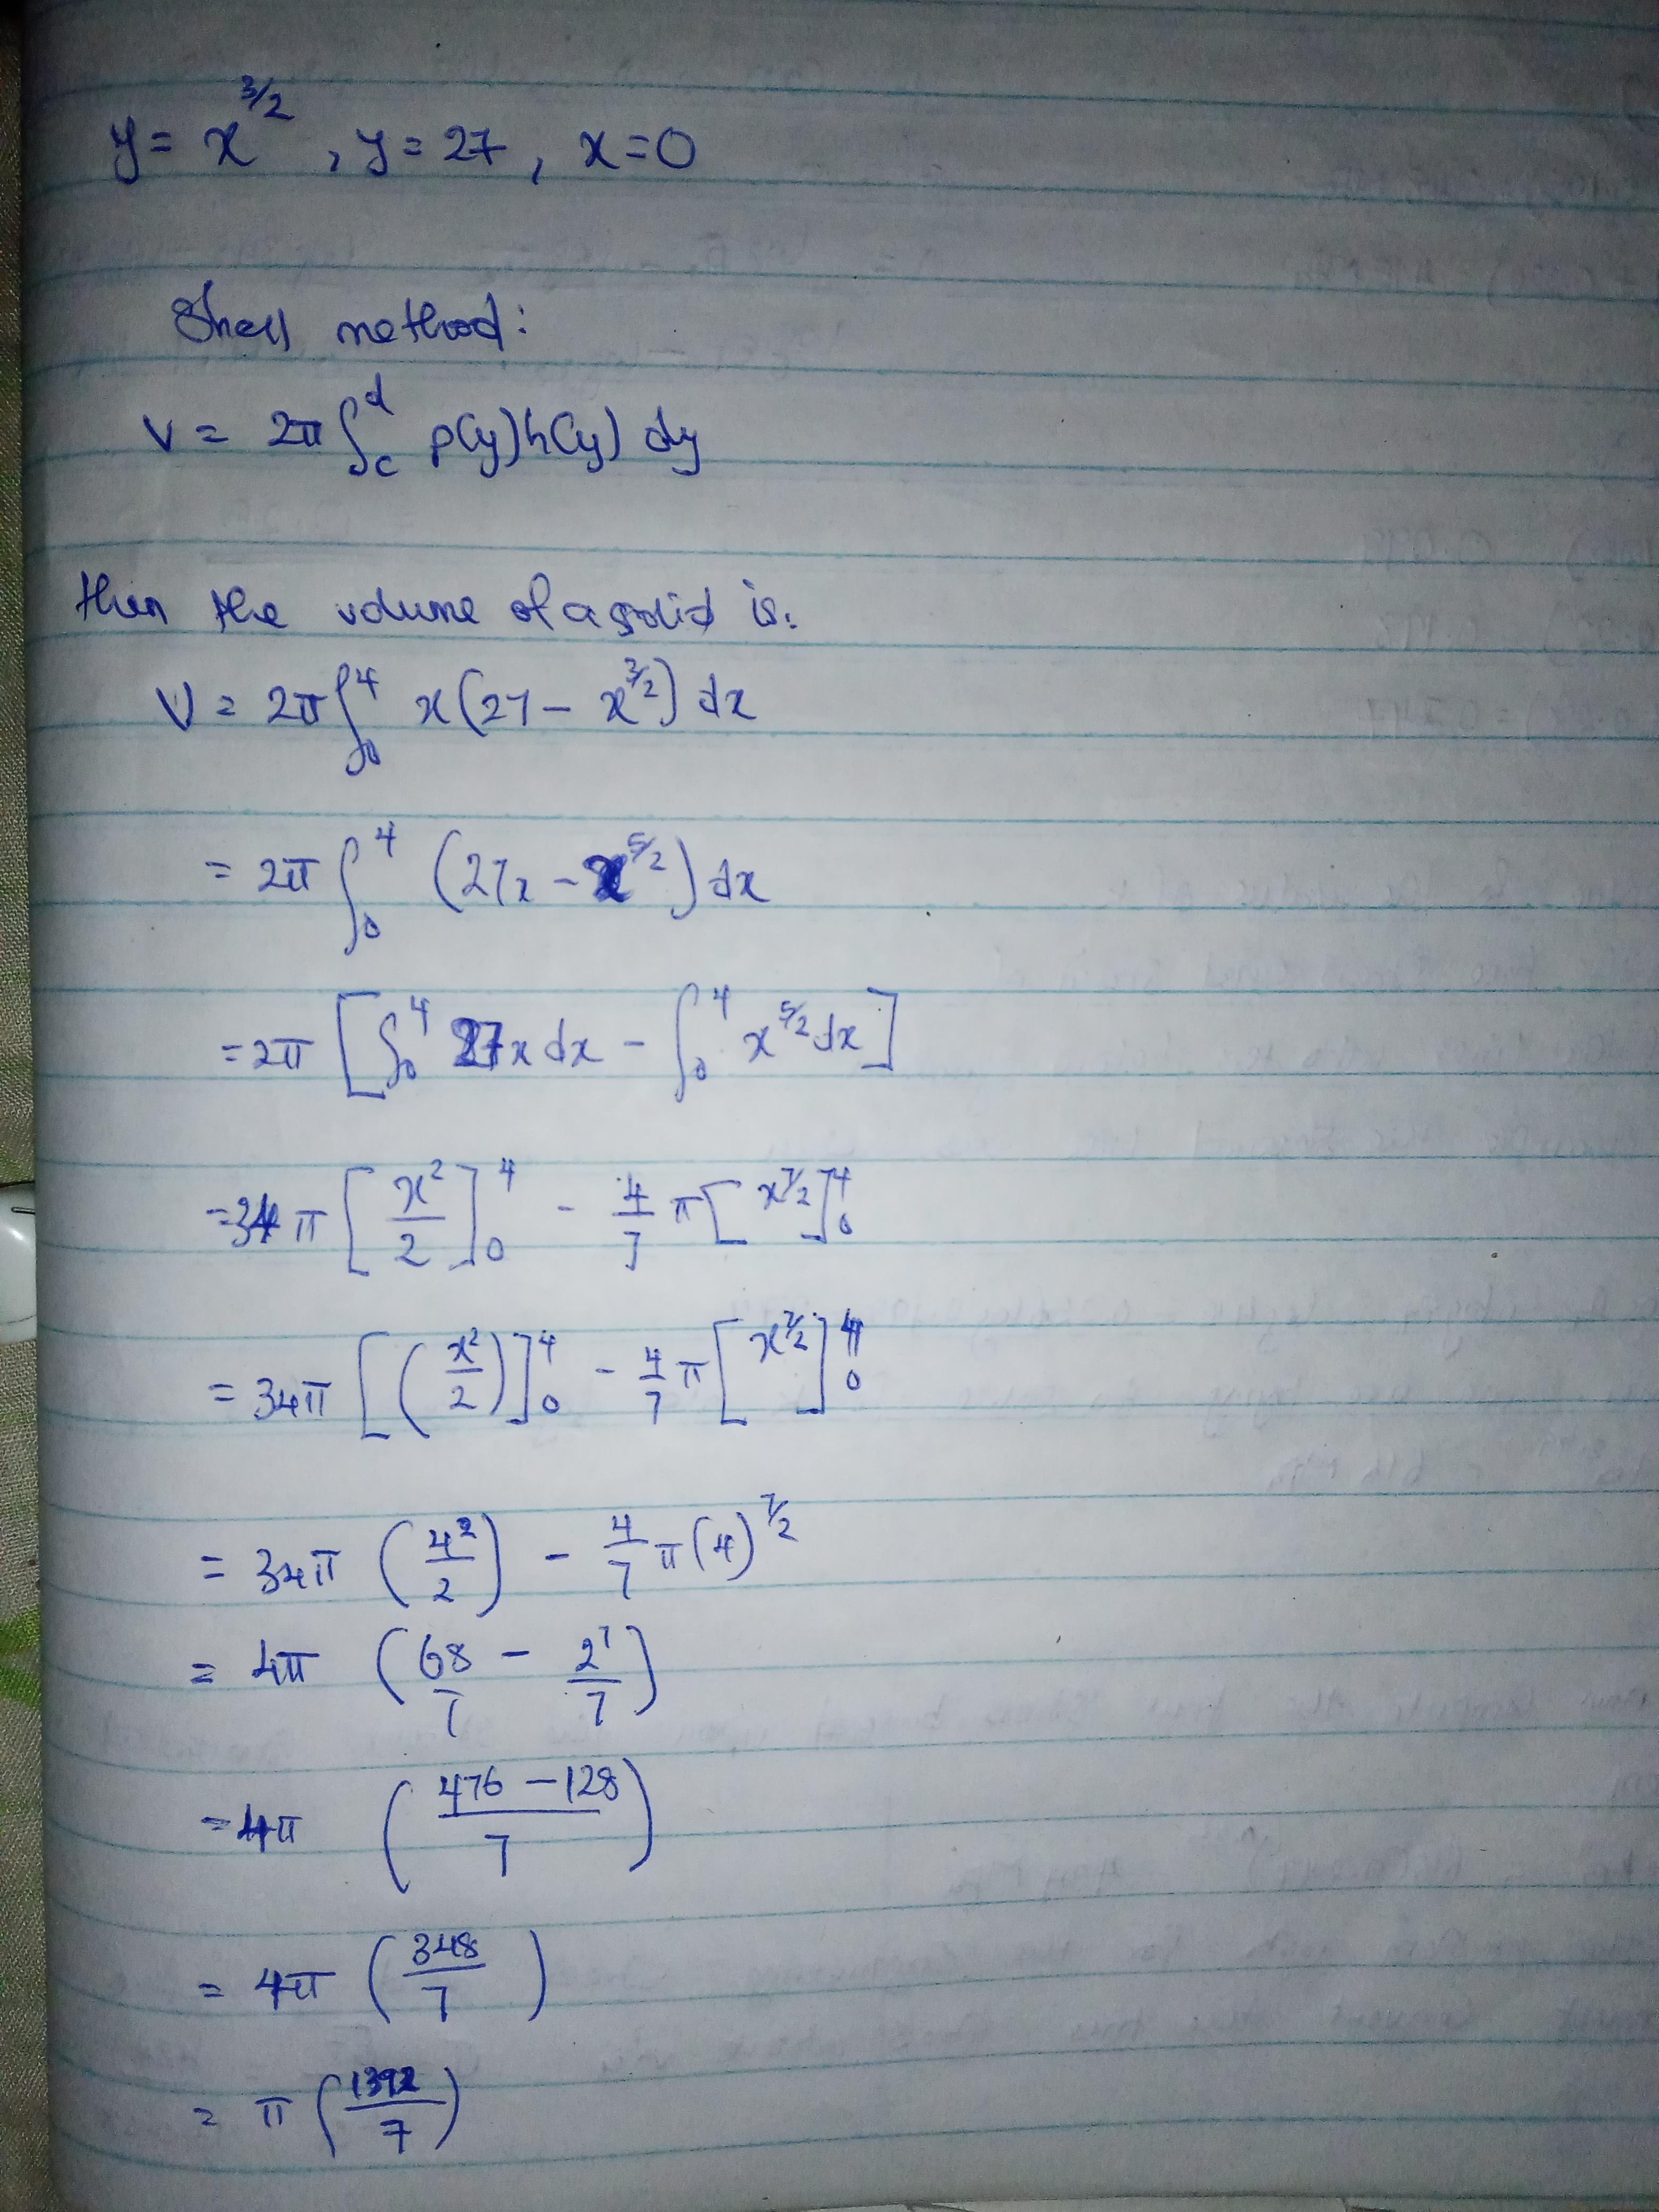 y = x^{3/2}, y = 27, x = 0
Shell method:
V = 2π ∫_c^d p(y)h(y) dy
then the volume of a solid is:
V = 2π ∫_0^4 x(27 - x^{3/2}) dx
= 2π ∫_0^4 (27x - x^{5/2}) dx
= 2π [∫_0^4 27x dx - ∫_0^4 x^{5/2} dx]
= 34π [x^2/2]_0^4 - 4/7 π [x^{7/2}]_0^4
= 34π [(x^2/2)]_0^4 - 4/7 π [x^{7/2}]_0^4
= 34π (4^2/2) - 4/7 π (4)^{7/2}
= 4π (68/1 - 2^7/7)
= 4π ((476 - 128)/7)
= 4π (348/7)
= π (1392/7)